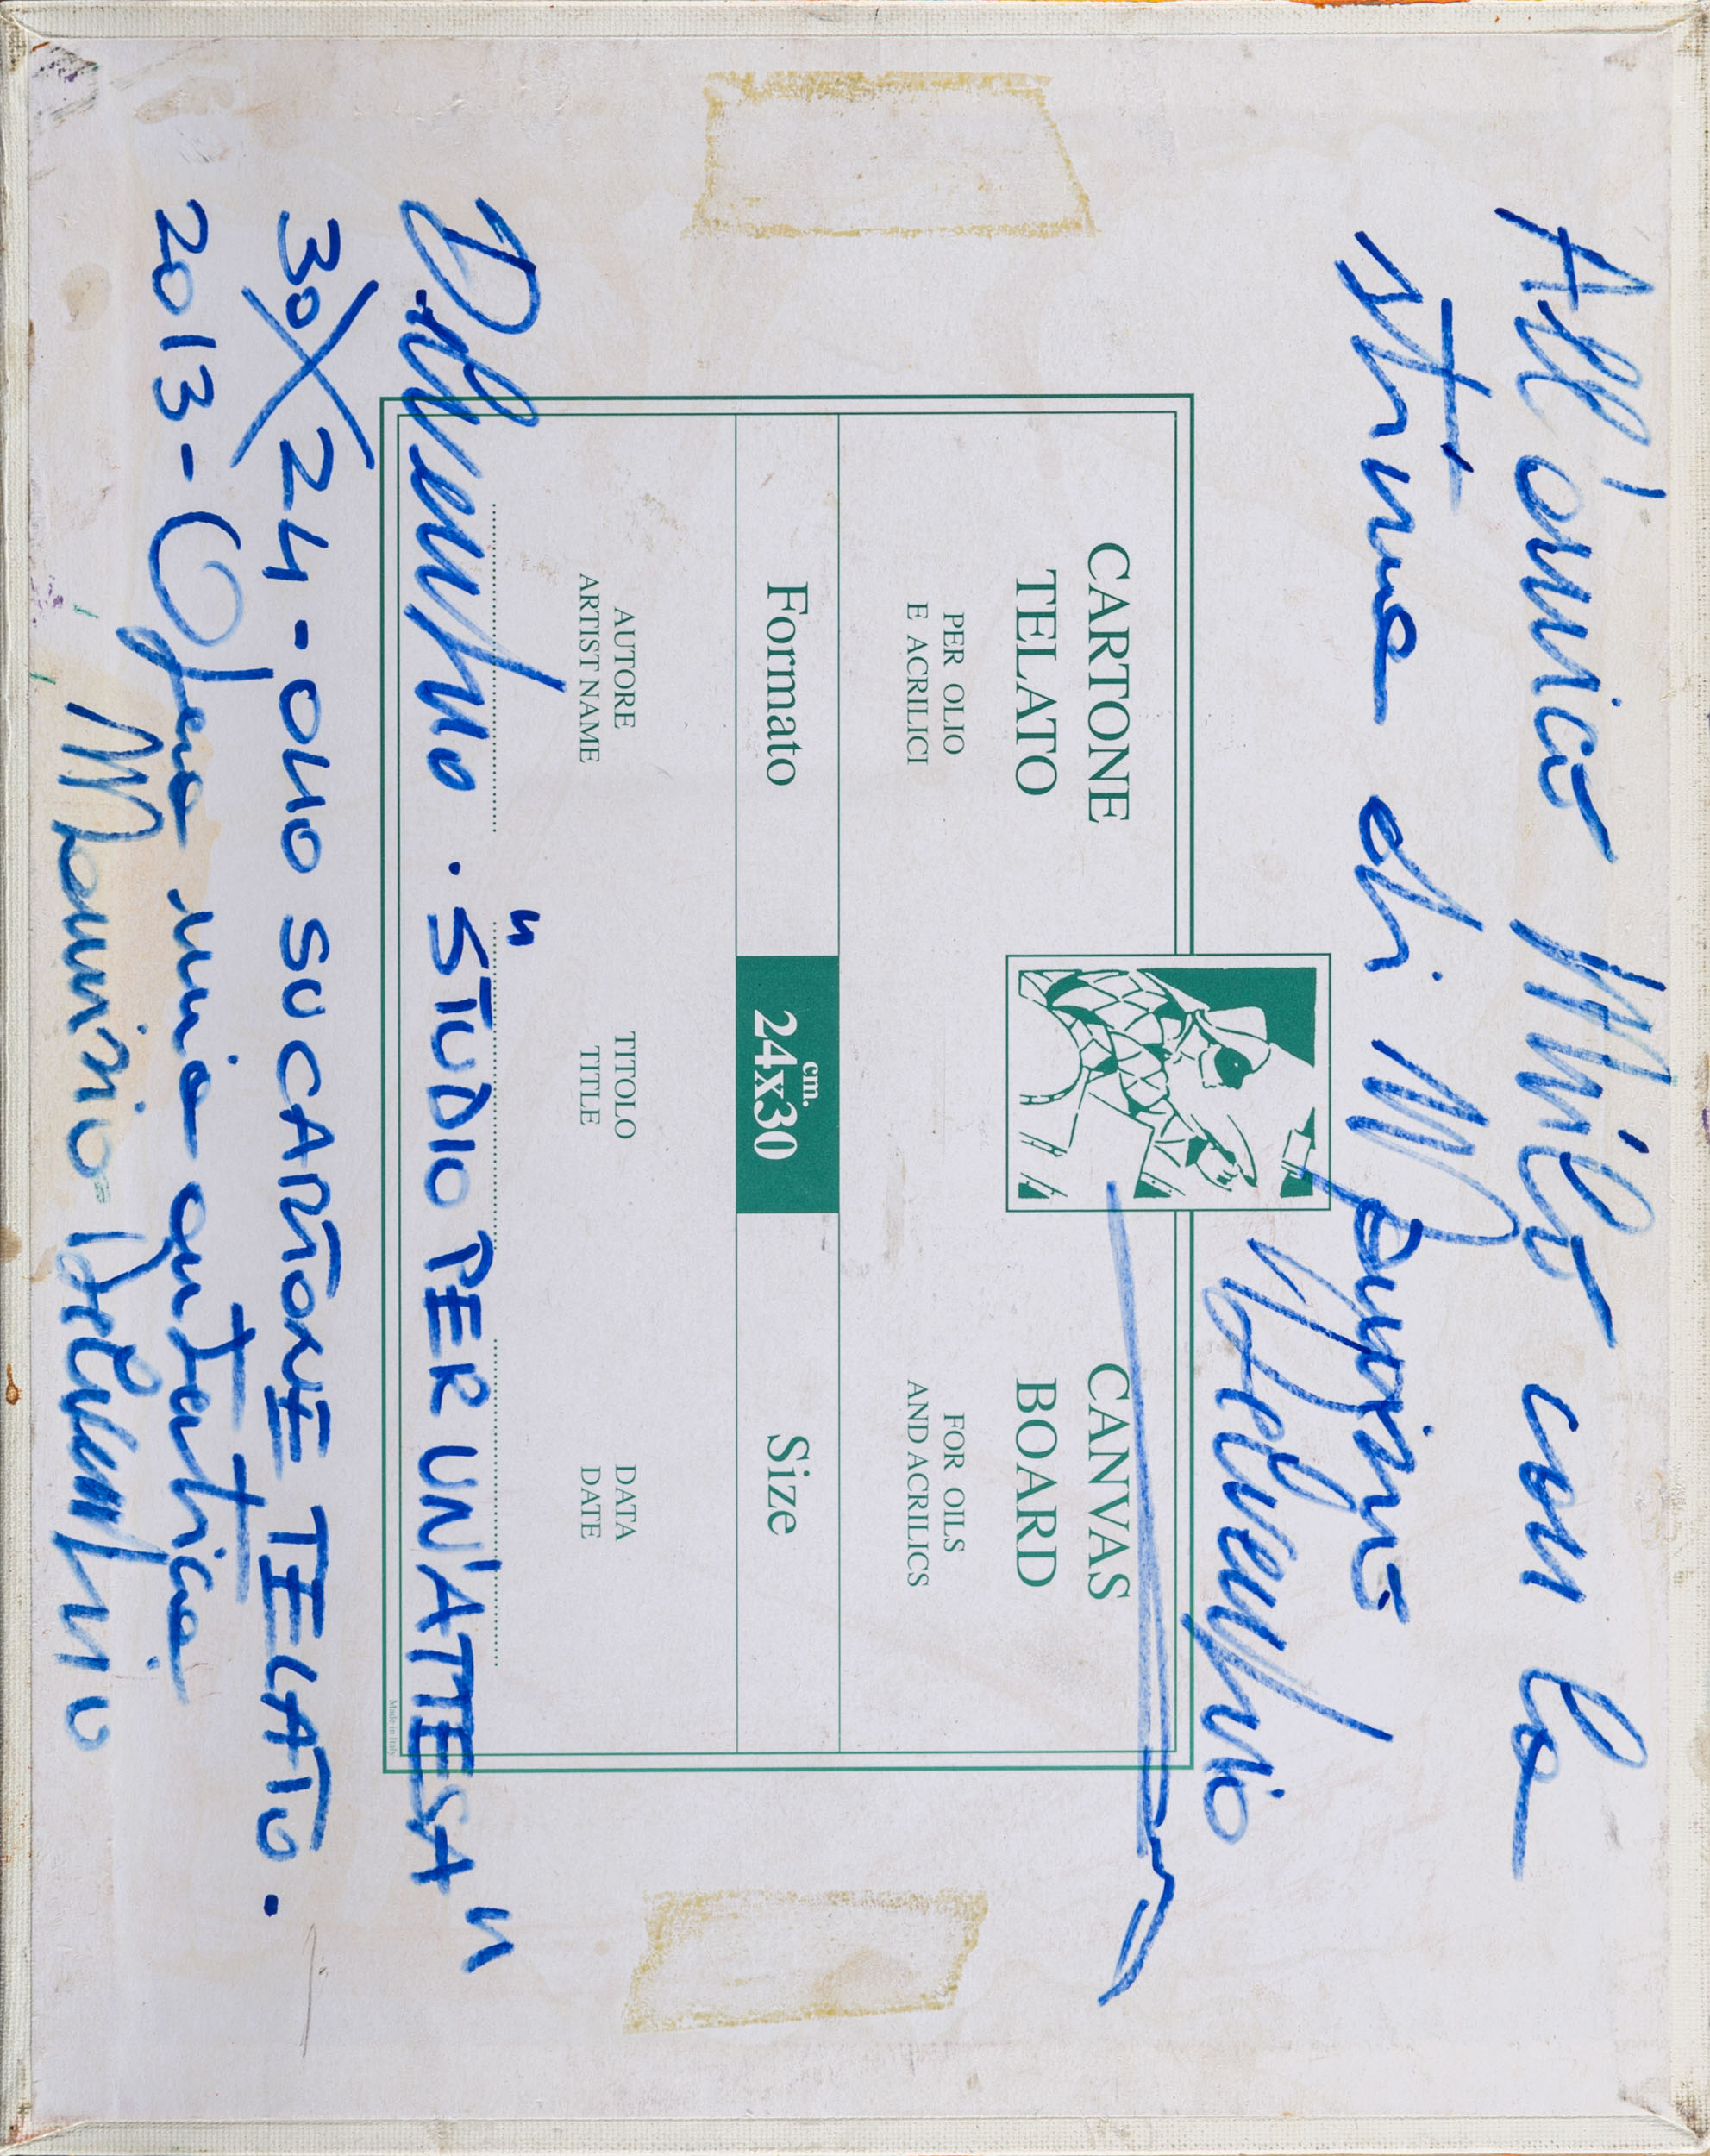 All'amico Milo con la
stima di Maurizio
Delvecchio
CARTONE
TELATO
PER OLIO
E ACRILICI
CANVAS
BOARD
FOR OILS
AND ACRILICS
Formato
cm.
24x30
Size
AUTORE
ARTIST NAME
TITOLO
TITLE
DATA
DATE
Delvecchio. "STUDIO PER UN'ATTESA"
30X24-OLIO SU CARTONE TELATO.
2013-Opera mia autentica
Maurizio Delvecchio
Made in Italy